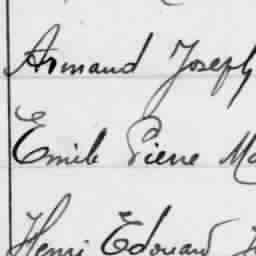 Armand Joseph
Emile Pierre Ma
Henri Edouard